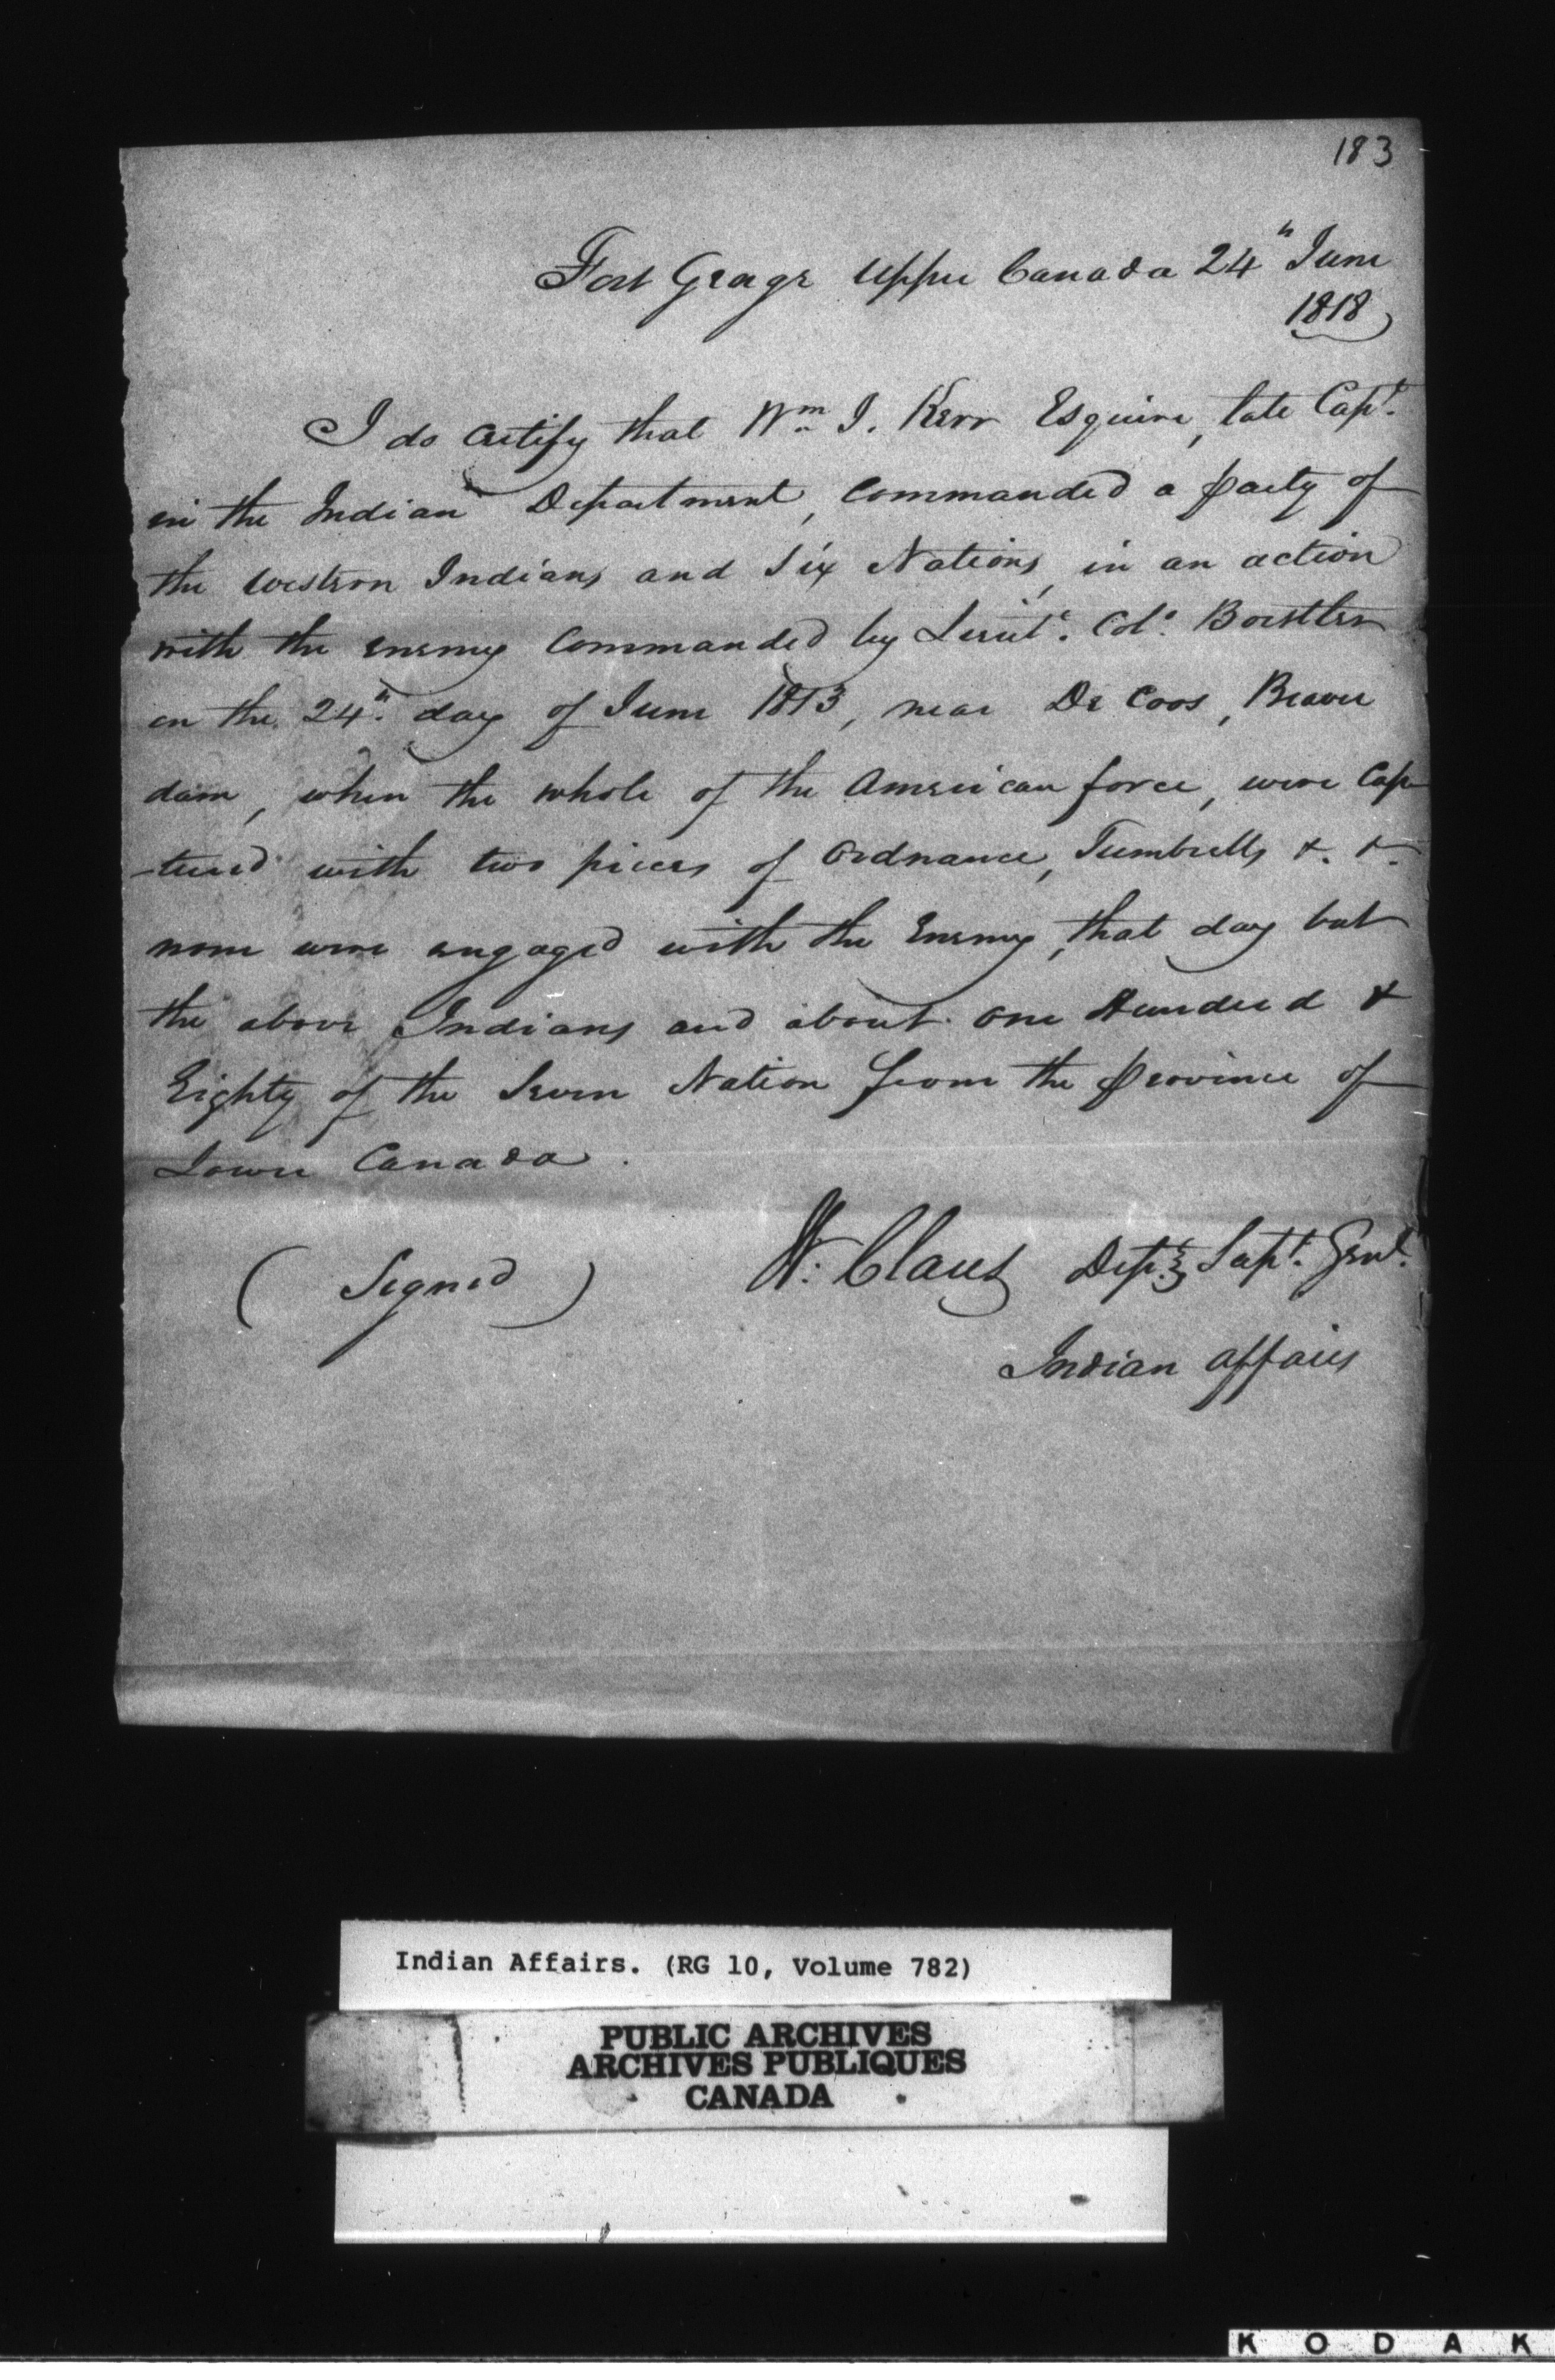 183
Fort George Upper Canada 24th June
1818
I do certify that Wm. J. Kerr Esquire, late Capt.
in the Indian Department, Commanded a party of
the Western Indians and Six Nations, in an action
with the enemy Commanded by Lieut. Col. Boestler
on the 24th. day of June 1813, near De Coos, Beaver
dam, when the whole of the American force, were Cap
-tured with two pieces of Ordnance, Tumbrells &. &.
none were engaged with the Enemy, that day but
the above Indians and about One Hundred &
Eighty of the Seven Nation from the province of
Lower Canada.
(Signed) W. Claus Depy. Supt. Genl.
Indian affairs
Indian Affairs. (RG 10, Volume 782)
PUBLIC ARCHIVES
ARCHIVES PUBLIQUES
CANADA
KODAK